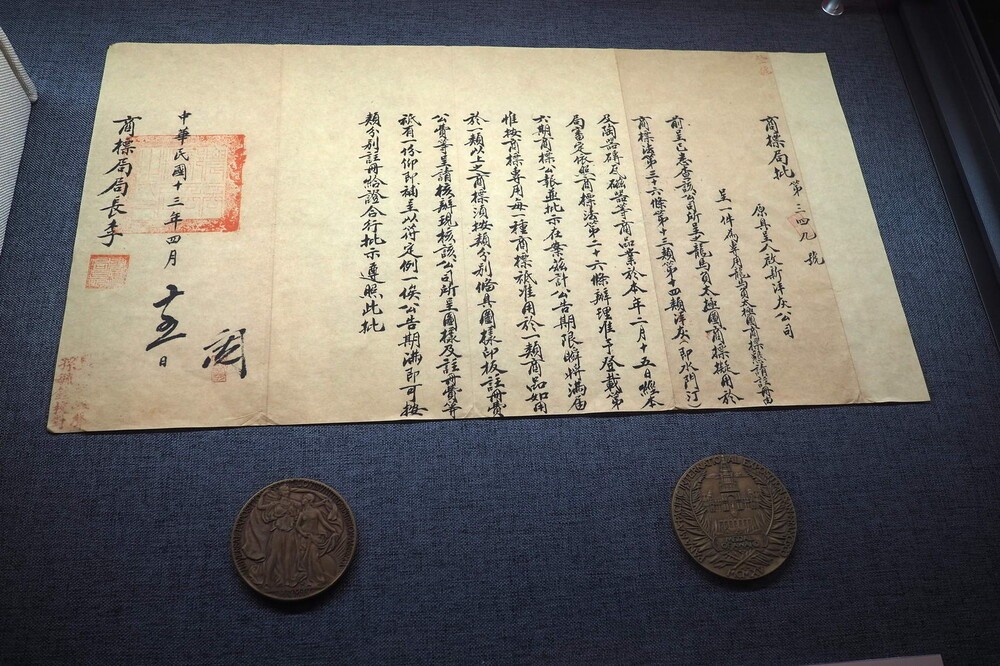 商標局批第三四九號
原具呈人啟新洋灰公司
呈一件為牟用龍馬負太極圖商標懇請註冊由
前呈已悉查該公司所呈之龍馬負太極圖商標擬用於
商標法第三十六條第十三類第十四類洋灰(即水門汀)
及陶器磚瓦磁器等商品業於本年二月十五日經本
局審定依照商標法第二十六條辦理准予登載第
六期商標公報並批示在案茲計公告期限瞬將滿屆
惟按商標專用每一種商標祇准用於一類商品如用
於一類以上之商標須按類分別備具圖樣印板註冊費
公費等呈請核辦現核該公司所呈圖樣及註冊費等
祇有一份仰即補呈以符定例一俟公告期滿即可按
類分別註冊給證合行批示遵照此批
中華民國十三年四月十五日
商標局局長李